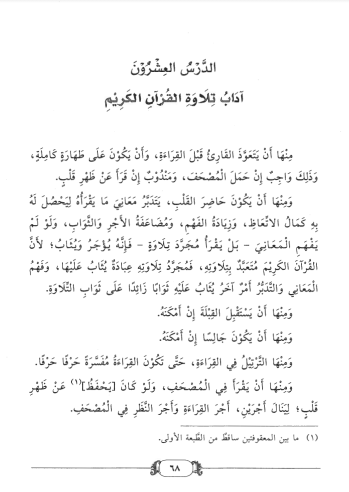 الدَّرْسُ العِشْرُوْنَ
آدَابُ تِلَاوَةِ القُرْآنِ الكَرِيْمِ
مِنْهَا أَنْ يَتَعَوَّذَ القَارِئُ قَبْلَ القِرَاءَةِ، وَأَنْ يَكُوْنَ عَلَى طَهَارَةٍ كَامِلَةٍ،
وَذَلِكَ وَاجِبٌ إِنْ حَمَلَ الْمُصْحَفَ، وَمَنْدُوْبٌ إِنْ قَرَأَ عَنْ ظَهْرِ قَلْبٍ.
وَمِنْهَا أَنْ يَكُوْنَ حَاضِرَ القَلْبِ، يَتَدَبَّرُ مَعَانِيَ مَا يَقْرَأُهُ لِيَحْصُلَ لَهُ
بِهِ كَمَالُ الاتِّعَاظِ، وَزِيَادَةُ الفَهْمِ، وَمُضَاعَفَةُ الأَجْرِ وَالثَّوَابِ، وَلَوْ لَمْ
يَفْهَمِ الْمَعَانِيَ – بَلْ يَقْرَأُ مُجَرَّدَ تِلَاوَةٍ – فَإِنَّهُ يُؤْجَرُ وَيُثَابُ؛ لأَنَّ
القُرْآنَ الكَرِيْمَ مُتَعَبَّدٌ بِتِلَاوَتِهِ، فَمُجَرَّدُ تِلَاوَتِهِ عِبَادَةٌ يُثَابُ عَلَيْهَا، وَفَهْمُ
الْمَعَانِي وَالتَّدَبُّرُ أَمْرٌ آخَرُ يُثَابُ عَلَيْهِ ثَوَابًا زَائِدًا عَلَى ثَوَابِ التِّلَاوَةِ.
وَمِنْهَا أَنْ يَسْتَقْبِلَ القِبْلَةَ إِنْ أَمْكَنَهُ.
وَمِنْهَا أَنْ يَكُوْنَ جَالِسًا إِنْ أَمْكَنَهُ.
وَمِنْهَا التَّرْتِيْلُ فِي القِرَاءَةِ، حَتَّى تَكُوْنَ القِرَاءَةُ مُفَسَّرَةً حَرْفًا حَرْفًا.
وَمِنْهَا أَنْ يَقْرَأَ فِي الْمُصْحَفِ، وَلَوْ كَانَ [يَحْفَظُ](١) عَنْ ظَهْرِ
قَلْبٍ؛ لِيَنَالَ أَجْرَيْنِ، أَجْرَ القِرَاءَةِ وَأَجْرَ النَّظَرِ فِي الْمُصْحَفِ.
(١) ما بين المعقوفتين ساقط من الطبعة الأولى.
٦٨